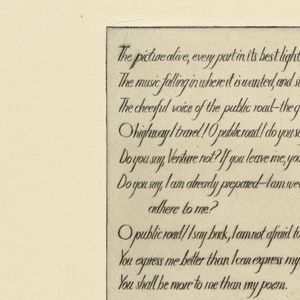 The picture alive, every part in its best light
The music falling in where it is wanted, and
The cheerful voice of the public road—the
O highway I travel! O public road! do you say
Do you say, Venture not? If you leave me, you
Do you say, I am already prepared—I am
adhere to me?
O public road! I say back, I am not afraid to
You express me better than I can express my
You shall be more to me than my poem.